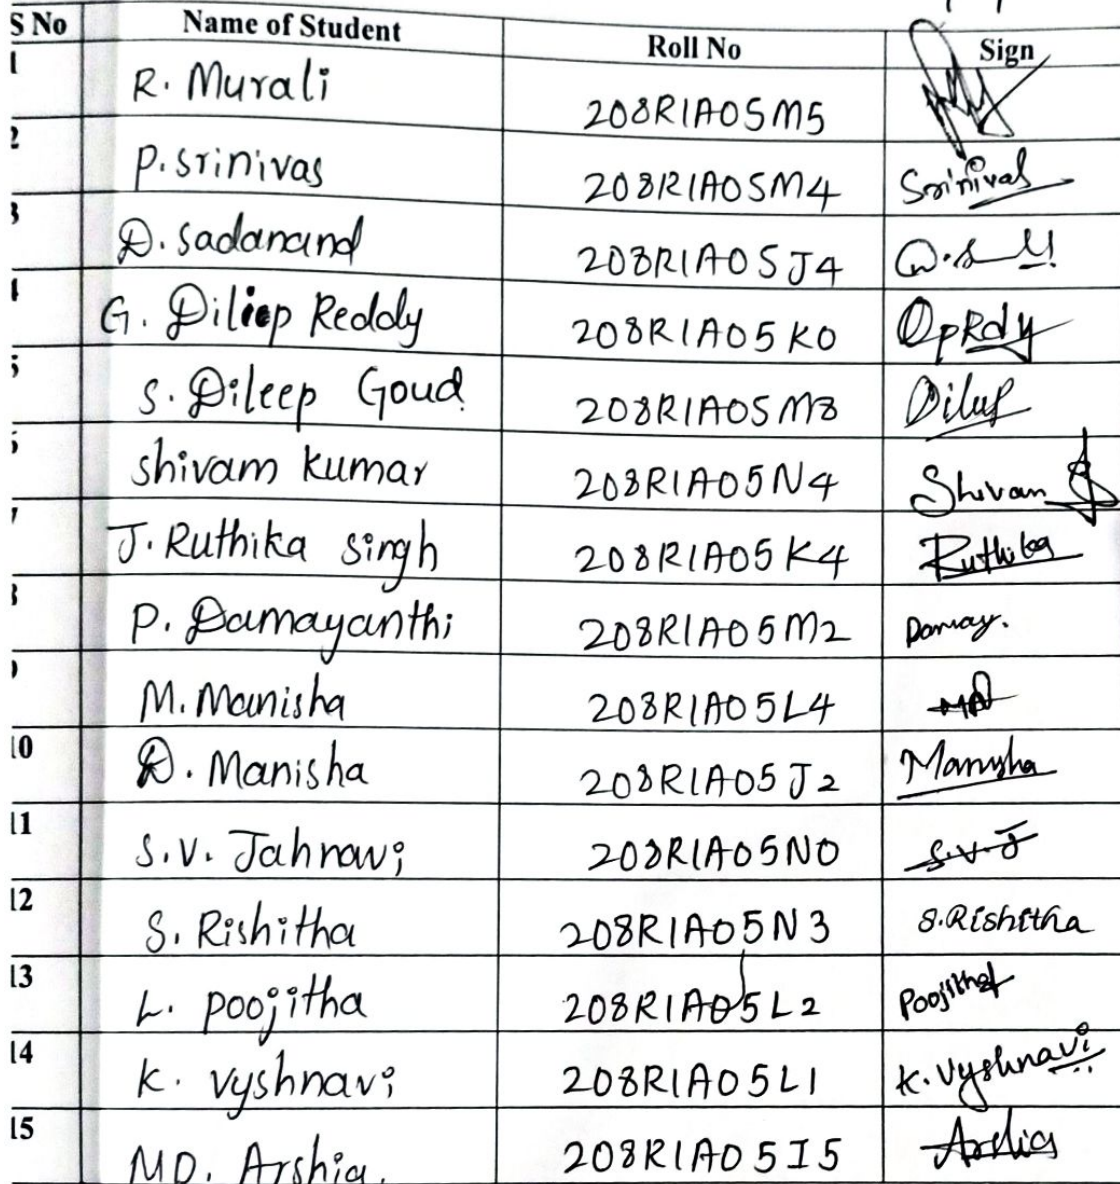 S No Name of Student Roll No Sign
1 R. Murali 208R1A05M5
2 P. srinivas 208R1A05M4 Srinivas
3 D. sadanand 208R1A05J4
4 G. Diliep Reddy 208R1A05K0
5 S. Dileep Goud 208R1A05M8 Dilep
6 shivam kumar 208R1A05N4 Shivam
7 J. Ruthika singh 208R1A05K4 Ruthika
8 P. Damayanthi 208R1A05M2 Damay.
9 M. Manisha 208R1A05L4
10 D. Manisha 208R1A05J2 Manisha
11 S.V. Jahnavi 208R1A05N0 S.V.J
12 S. Rishitha 208R1A05N3 S.Rishitha
13 L. poojitha 208R1A05L2 Poojitha
14 K. vyshnavi 208R1A05L1 K. Vyshnavi
15 MD. Arshia. 208R1A05I5 Arshia